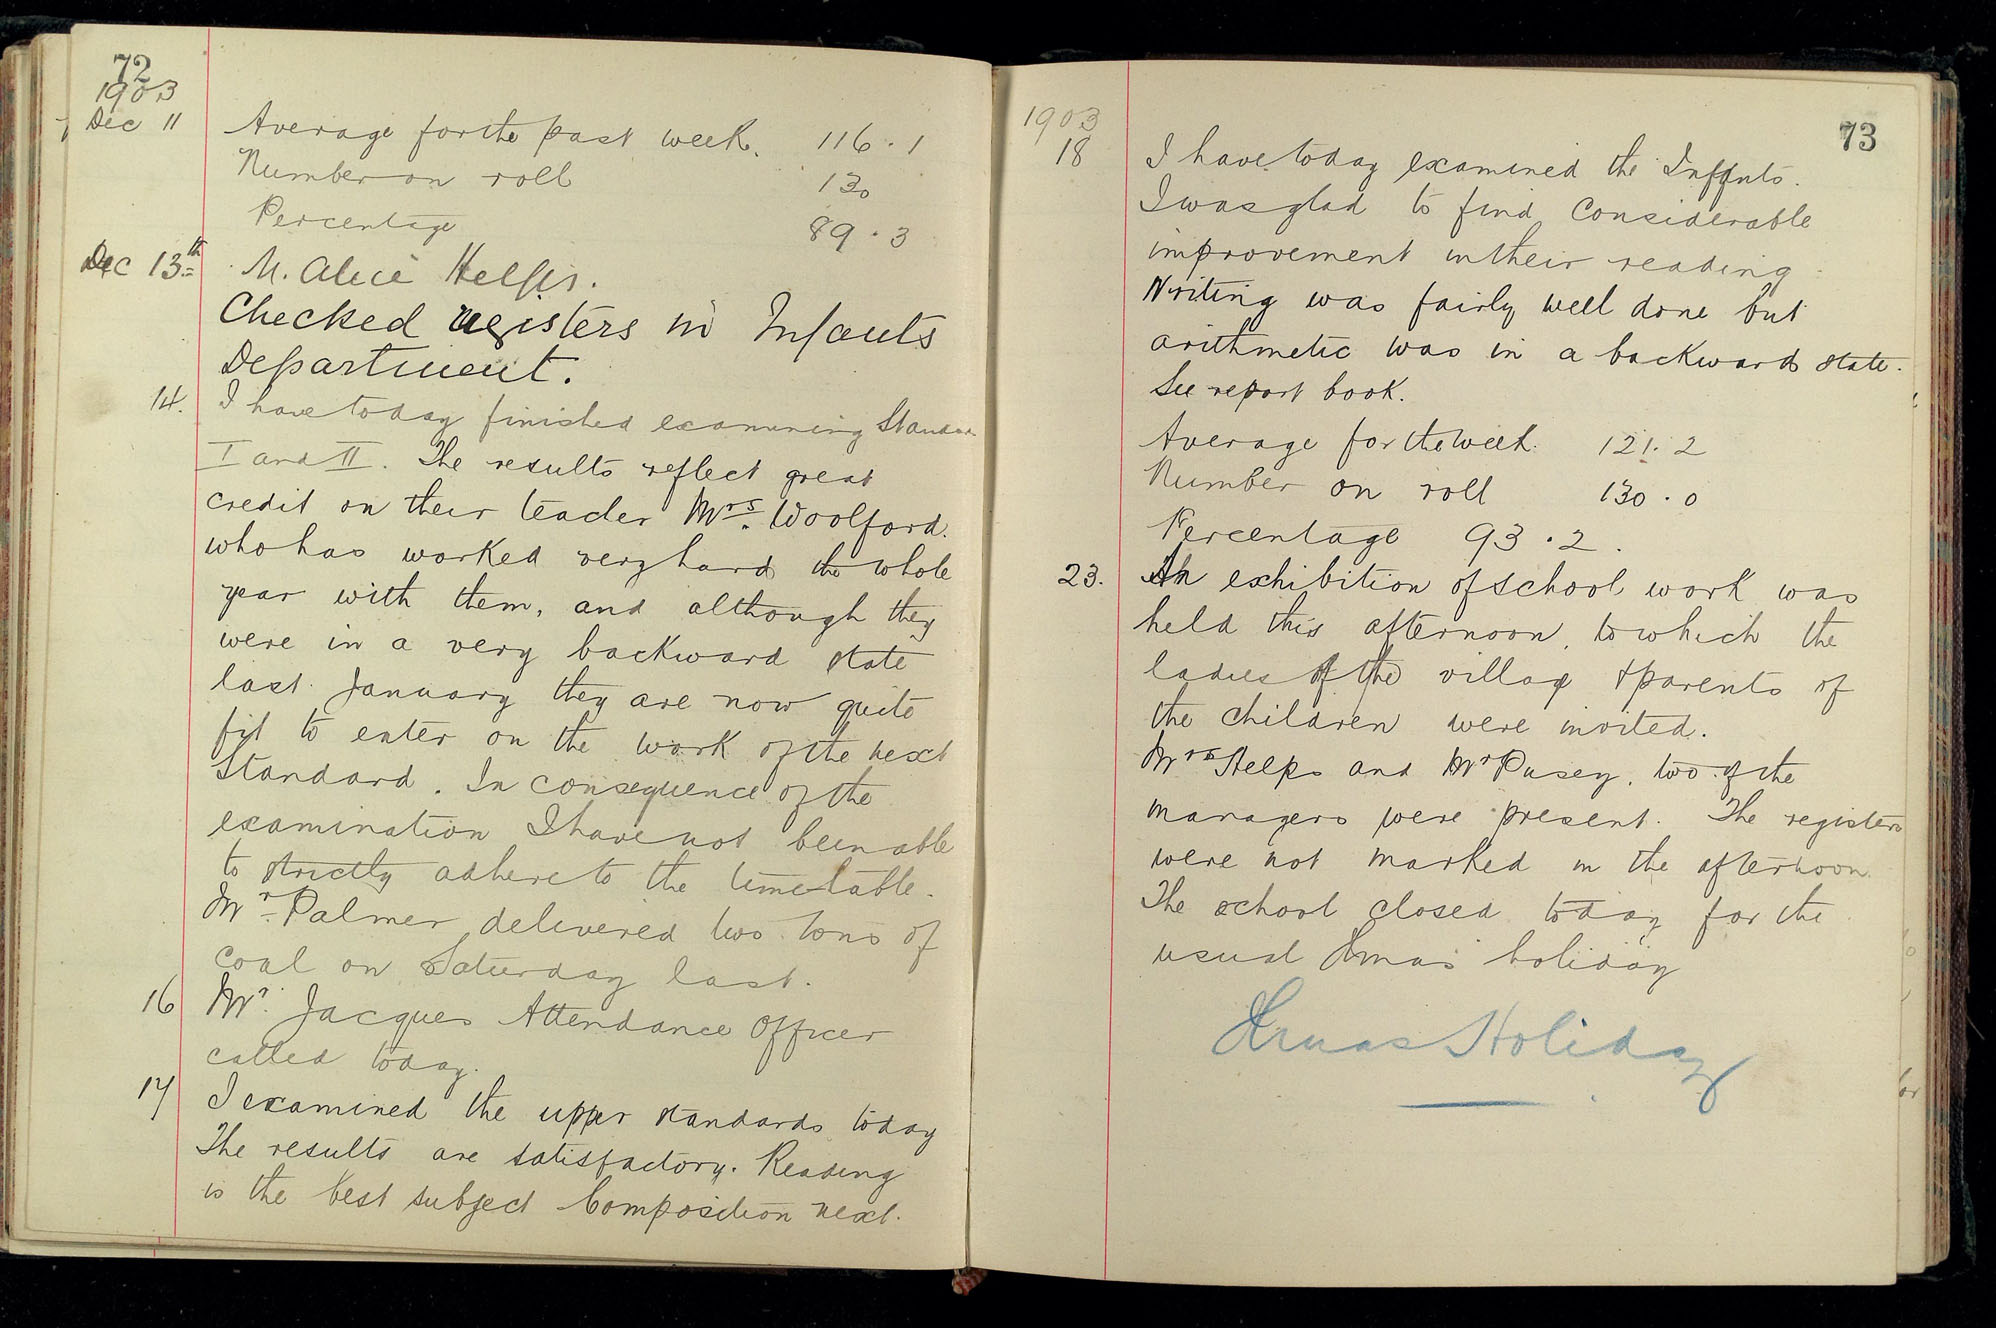 72
1903
Dec 11 Average for the past week. 116.1
Number on roll 130
Percentage 89.3
Dec 13th M. Alice Helps.
Checked registers in Infants
Department.
14. I have today finished examining Standards
I and II. The results reflect great
credit on their teacher Mrs. Woolford.
who has worked very hard the whole
year with them, and although they
were in a very backward state
last January they are now quite
fit to enter on the work of the next
Standard. In consequence of the
examination I have not been able
to strictly adhere to the timetable.
Mr. Palmer delivered two tons of
coal on Saturday last.
16 Mr. Jacques Attendance Officer
called today.
17 I examined the upper standards today
The results are satisfactory. Reading
is the best subject Composition next.
73
1903
18 I have today examined the Infants.
I was glad to find considerable
improvement in their reading.
Writing was fairly well done but
arithmetic was in a backward state.
See report book.
Average for the week. 121.2
Number on roll 130.0
Percentage 93.2.
23. An exhibition of school work was
held this afternoon, to which the
ladies of the village & parents of
the children were invited.
Mrs Helps and Mr Pusey, two of the
managers were present. The registers
were not marked in the afternoon.
The school closed today for the
usual Xmas holiday
Xmas Holiday